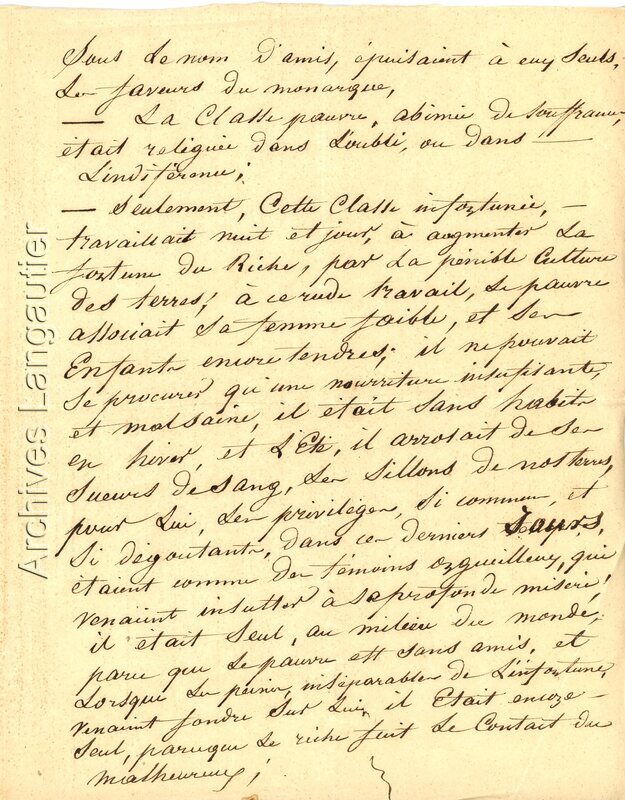 Sous Le nom D'amis, épuisaient à eux seuls,
Les faveurs du monarque,
— La Classe pauvre, abimée de souffrance,
était reléguée dans L'oubli, ou dans —
L'indiférence;
— Seulement, Cette Classe infortunée, —
travaillait nuit et jour, à augmenter La
fortune du Riche, par La pénible Culture
des terres; à ce rude travail, Le pauvre
associait Sa femme faible, et Ses
Enfants encore tendres; il ne pouvait
Se procurer qu'une nourriture insufisante,
et malsaine, il était sans habits
en hiver, et L'Eté, il arrosait de Ses
Sueurs de Sang, Les Sillons de nos terres,
pour Lui, Les privilèges, Si communs, et
Si dégoutants, dans ces derniers jours,
étaient comme des témoins orgueilleux, qui
venaient insulter à sa profonde misère!
il était Seul, au milieu du monde,
parce que Le pauvre est sans amis, et
Lorsque Les peines, inséparables de L'infortune,
venaient fondre Sur Lui, il Etait encore —
Seul, parceque Le riche fuit Le Contact du
malheureux;
Archives Langautier